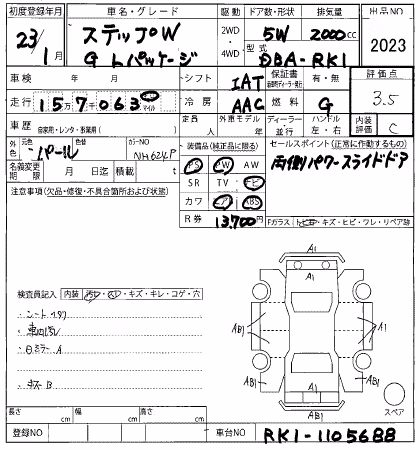 初度登録年月 車名・グレード 駆動 ドア数・形状 排気量 出品NO
23年 1月 ステップW 2WD 5W 2000cc 2023
G Lパッケージ 4WD 型式 DBA-RK1
車検 年 月 シフト IAT 保証書 有・無 評価点 3.5
走行 157,063 マイル 冷房 AAC 燃料 G
車歴 自家用・レンタ・事業用( ) 定員 人 外車モデル 年 ディーラー 並行 ハンドル 左・右 内装評価 C
外色 元色 パール 色替 カラーNO NH624P
装備品(純正品に限る) セールスポイント(正常に作動するもの)
PS PW AW 両側パワースライドドア
名義変更期限 月 日迄 積載 t
SR TV ナビ
注意事項(欠品・修復・不具合箇所および状態)
カワ エア ABS
R券 13,700円
Fガラス トビ石・キズ・ヒビ・ワレ・リペア跡
A1
A1
検査員記入 内装 汚レ・スレ・キズ・キレ・コゲ・穴
・シート
・車内汚レ
・Bミラー A
・キズ B
AB1 A1
AB1 AB1
A1
AB1
スペア
長さ cm 幅 cm 高さ cm
登録NO 車台NO RK1-1105688